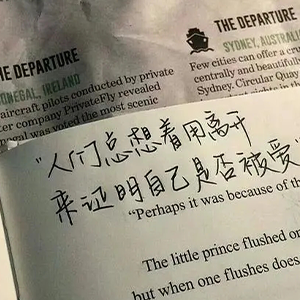 THE DEPARTURE
DONEGAL, IRELAND
aircraft pilots conducted by private
ter company PrivateFly revealed
negal was voted the most scenic
THE DEPARTURE
SYDNEY, AUSTRALIA
Few cities can offer a
centrally and beautifully
Sydney. Circular Quay
“人们总想着用离开
来证明自己是否被爱”
“Perhaps it was because of the
The little prince flushed on
but when one flushes does